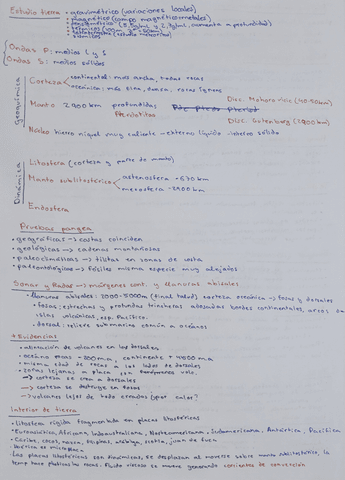 Estudio tierra • gravimétrico (variaciones locales)
• magnético (campo magnético, metales)
• sísmicos
Ondas P: medios L y S
Ondas S: medios sólidos
Geoquímica
Corteza continental: más ancha, todas rocas
oceánica: más fina, densa, rocas ígneas
Manto 2900 km profundidas Disc. Mohorovicic (40-50km)
Peridotitas Disc. Gutenberg (2900 km)
Núcleo hierro níquel muy caliente - externo líquido - interno sólido
Dinámica
Litosfera (corteza y parte de manto)
Manto sublitosférico astenosfera - 670 km
mesosfera - 2900 km
Endosfera
Pruebas pangea
• geográficas → costas coinciden
• geológicas → cadenas montañosas
• paleoclimáticas → tilitas en zonas de costa
• paleontológicas → fósiles misma especie muy alejados
Sonar y Radar → márgenes cont. y llanuras abisales
llanuras abisales: 2000-5000m (final talud) corteza oceánica → fosas y dorsales
• fosas: estrechas y profundas trincheras adosadas bordes continentales, arcos de
islas volcánicas, esp. Pacífico.
• dorsal: relieve submarino común a océanos
+ Evidencias
• alineación de volcanes en las dorsales
• océano rocas - 200 ma, continente + 4000 ma
• misma edad de rocas a los lados de dorsales
• zonas lejanas en placa con
→ corteza se crea a dorsales
→ corteza se destruye en fosas
→ volcanes lejos de todo
Interior de tierra
• litosfera rígida fragmentada en placas litosféricas
• Euroasiática, Africana, Indoaustraliana, Norteamericana, Sudamericana, Antártica, Pacífica
• Caribe, cocos, nazca, filipinas, arábiga, scotia, juan de fuca
• Ibérica es microplaca
• Las placas litosféricas son dinámicas, se desplazan al moverse sobre manto sublitosférico, la
temp hace plásticas las rocas. Fluido viscoso se mueve generando corrientes de convección